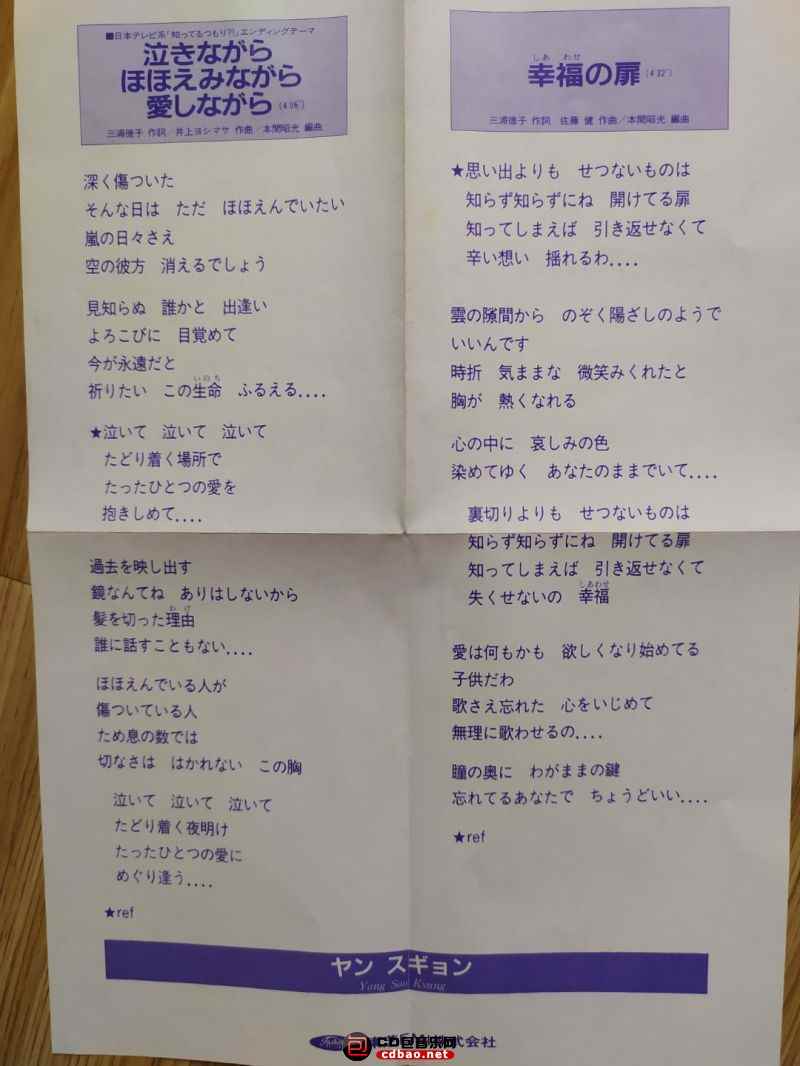 ■日本テレビ系「知ってるつもり?!」エンディングテーマ
泣きながら
ほほえみながら
愛しながら〔4'06"〕
三浦徳子 作詞／井上ヨシマサ 作曲／本間昭光 編曲
深く傷ついた
そんな日は　ただ　ほほえんでいたい
嵐の日々さえ
空の彼方　消えるでしょう
見知らぬ　誰かと　出逢い
よろこびに　目覚めて
今が永遠だと
いのち
祈りたい　この生命　ふるえる‥‥
★泣いて　泣いて　泣いて
たどり着く場所で
たったひとつの愛を
抱きしめて‥‥
過去を映し出す
鏡なんてね　ありはしないから
わけ
髪を切った理由
誰に話すこともない‥‥
ほほえんでいる人が
傷ついている人
ため息の数では
切なさは　はかれない　この胸
泣いて　泣いて　泣いて
たどり着く夜明け
たったひとつの愛に
めぐり逢う‥‥
★ref
しあ わせ
幸福の扉〔4'22"〕
三浦徳子 作詞　佐藤 健 作曲／本間昭光 編曲
★思い出よりも　せつないものは
知らず知らずにね　開けてる扉
知ってしまえば　引き返せなくて
辛い想い　揺れるわ‥‥
雲の隙間から　のぞく陽ざしのようで
いいんです
時折　気ままな　微笑みくれたと
胸が　熱くなれる
心の中に　哀しみの色
染めてゆく　あなたのままでいて‥‥
裏切りよりも　せつないものは
知らず知らずにね　開けてる扉
知ってしまえば　引き返せなくて
しあわせ
失くせないの　幸福
愛は何もかも　欲しくなり始めてる
子供だわ
歌さえ忘れた　心をいじめて
無理に歌わせるの‥‥
瞳の奥に　わがままの鍵
忘れてるあなたで　ちょうどいい‥‥
★ref
ヤン スギョン
Yang Soo Kyung
式会社
CD包音乐网
cdbao.net